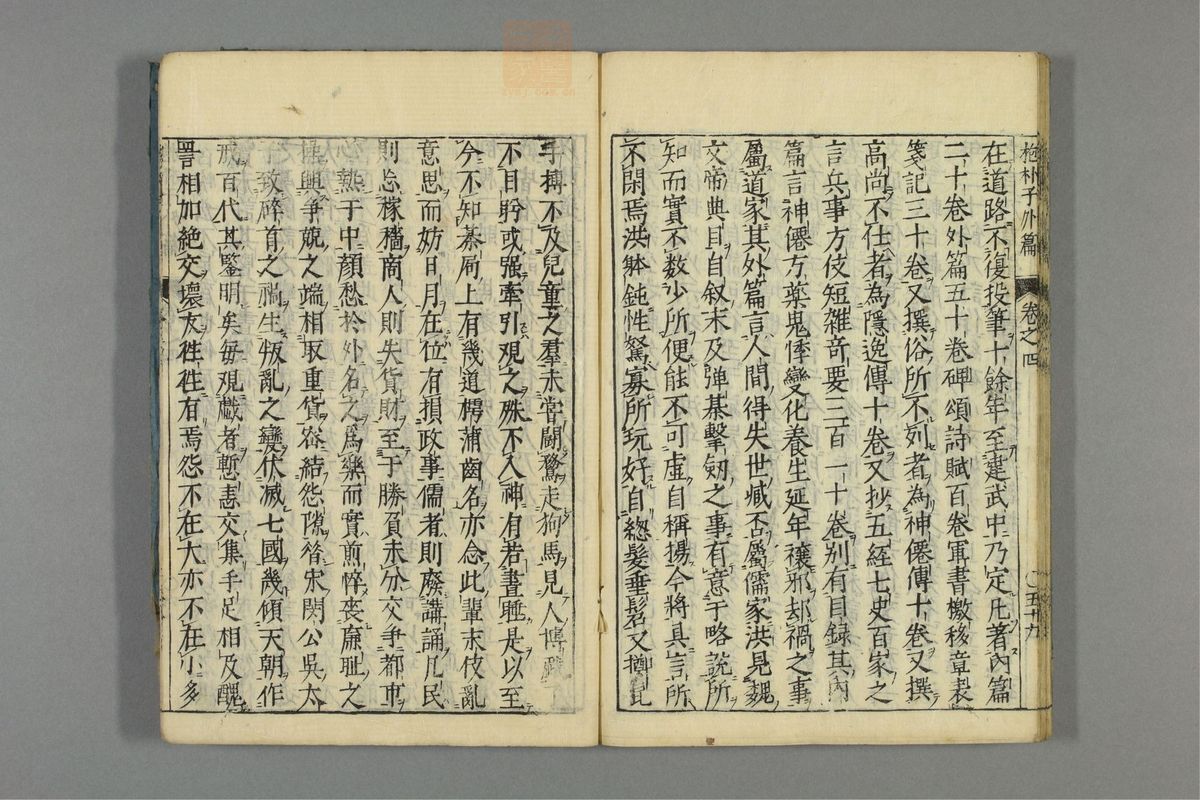 抱朴子外篇 卷之四 〇五十九
在道路不復投筆十餘年至建武中乃定凡著內篇
二十卷外篇五十卷碑頌詩賦百卷軍書檄移章表
箋記三十卷又撰俗所不列者為神僊傳十卷又撰
高尚不仕者為隱逸傳十卷又抄五經七史百家之
言兵事方伎短雜奇要三百一十卷別有目録其內
篇言神僊方藥鬼怪變化養生延年禳邪却禍之事
屬道家其外篇言人間得失世臧否屬儒家洪見魏
文帝典目自叙末及弹棊擊劒之事有意于略說所
知而實不数少所便能不可虛自稱揚今將具言所
不閑焉洪躰鈍性駑寡所玩好自緫髮垂髫又擲瓦
手摶不及兒童之羣未嘗鬪鷄走狗馬見人博戲
不目眄或强牽引观之殊不入神有若晝睡是以至
今不知棊局上有幾道樗蒲齒名亦念此輩末伎亂
意思而妨日月在位有損政事儒者則廢講誦凡民
則忘稼穡商人則失貨財至于勝負未分交爭都市
心熱于中顔愁於外名之為樂而實煎悴丧廉耻之
操興爭競之端相取重貨宻結怨隙昔宋閔公吳太
子致碎首之禍生叛亂之變伏滅七國幾傾天朝作
戒百代其鑒明矣每观戲者慙恚交集手足相及醜
詈相加絶交壞友徃徃有焉怨不在大亦不在小多